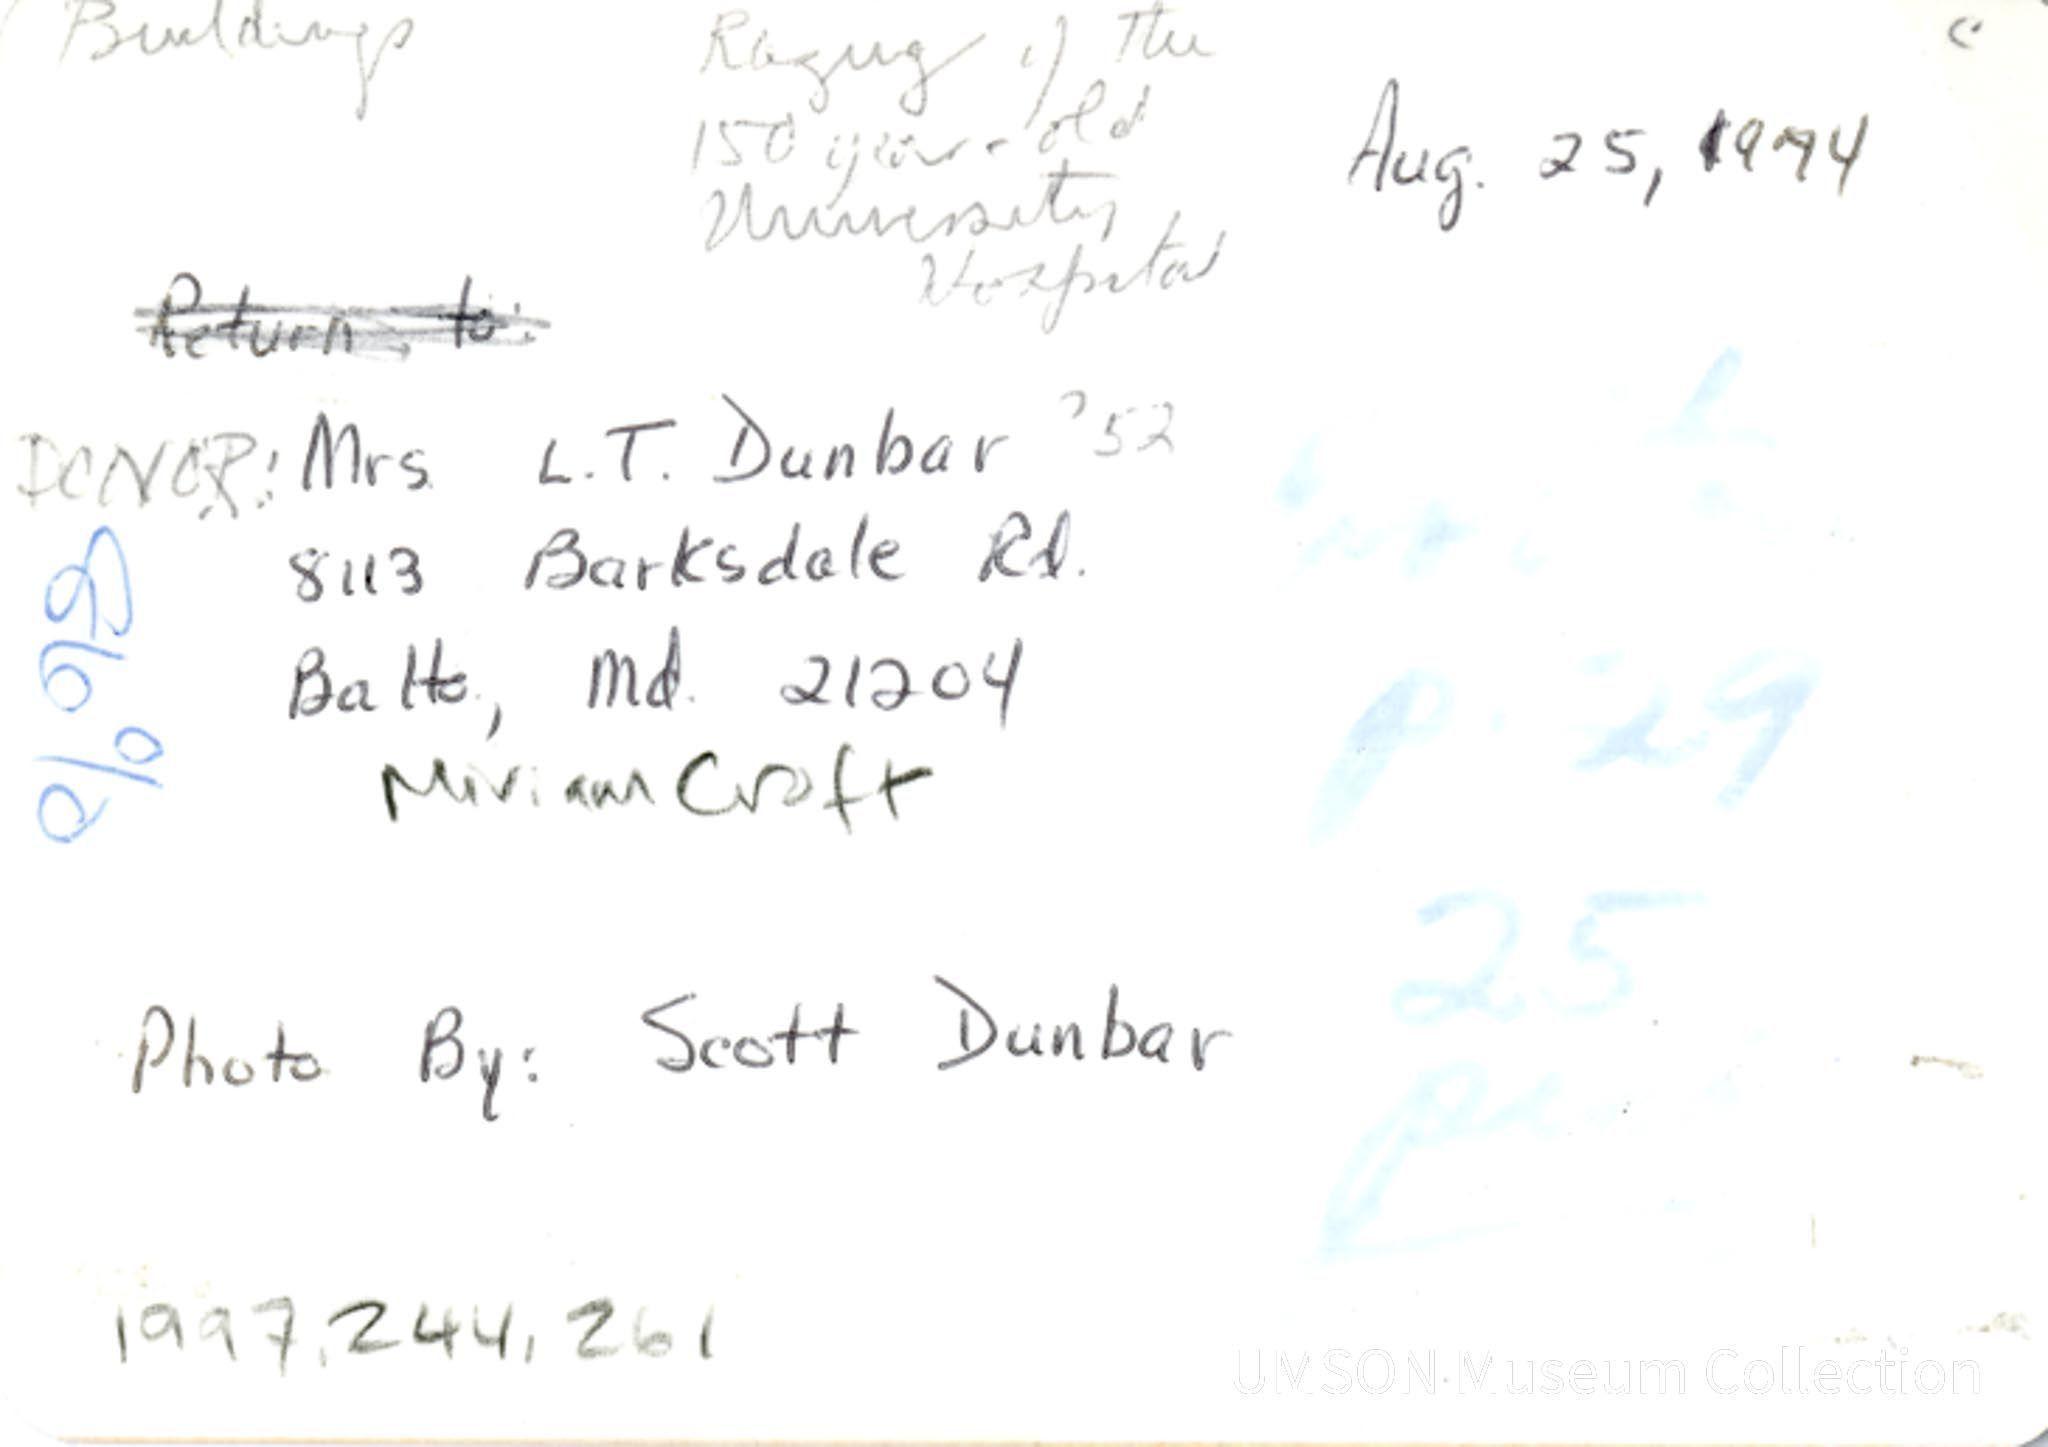 Buildings
Razing of the
150 year-old
University
Hospital
Aug. 25, 1974
Return to:
DONOR: Mrs. L.T. Dunbar '52
8113 Barksdale Rd.
Balto, Md. 21204
Miriam Croft
Photo By: Scott Dunbar
p. 29
25
1997.244.261
UMSON Museum Collection